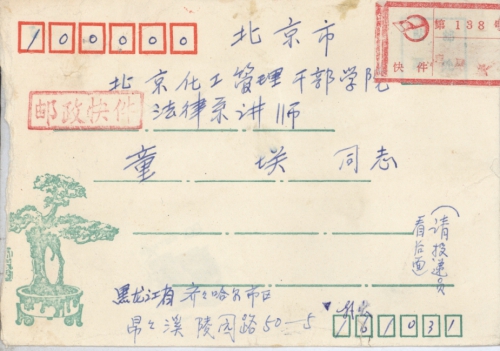 100000
北京市
第138号
快件
北京化工管理干部学院
邮政快件
法律系讲师
童 埃 同志
(请投递员
看后面)
黑龙江省齐々哈尔市
昂々溪陵园路50—5
161031